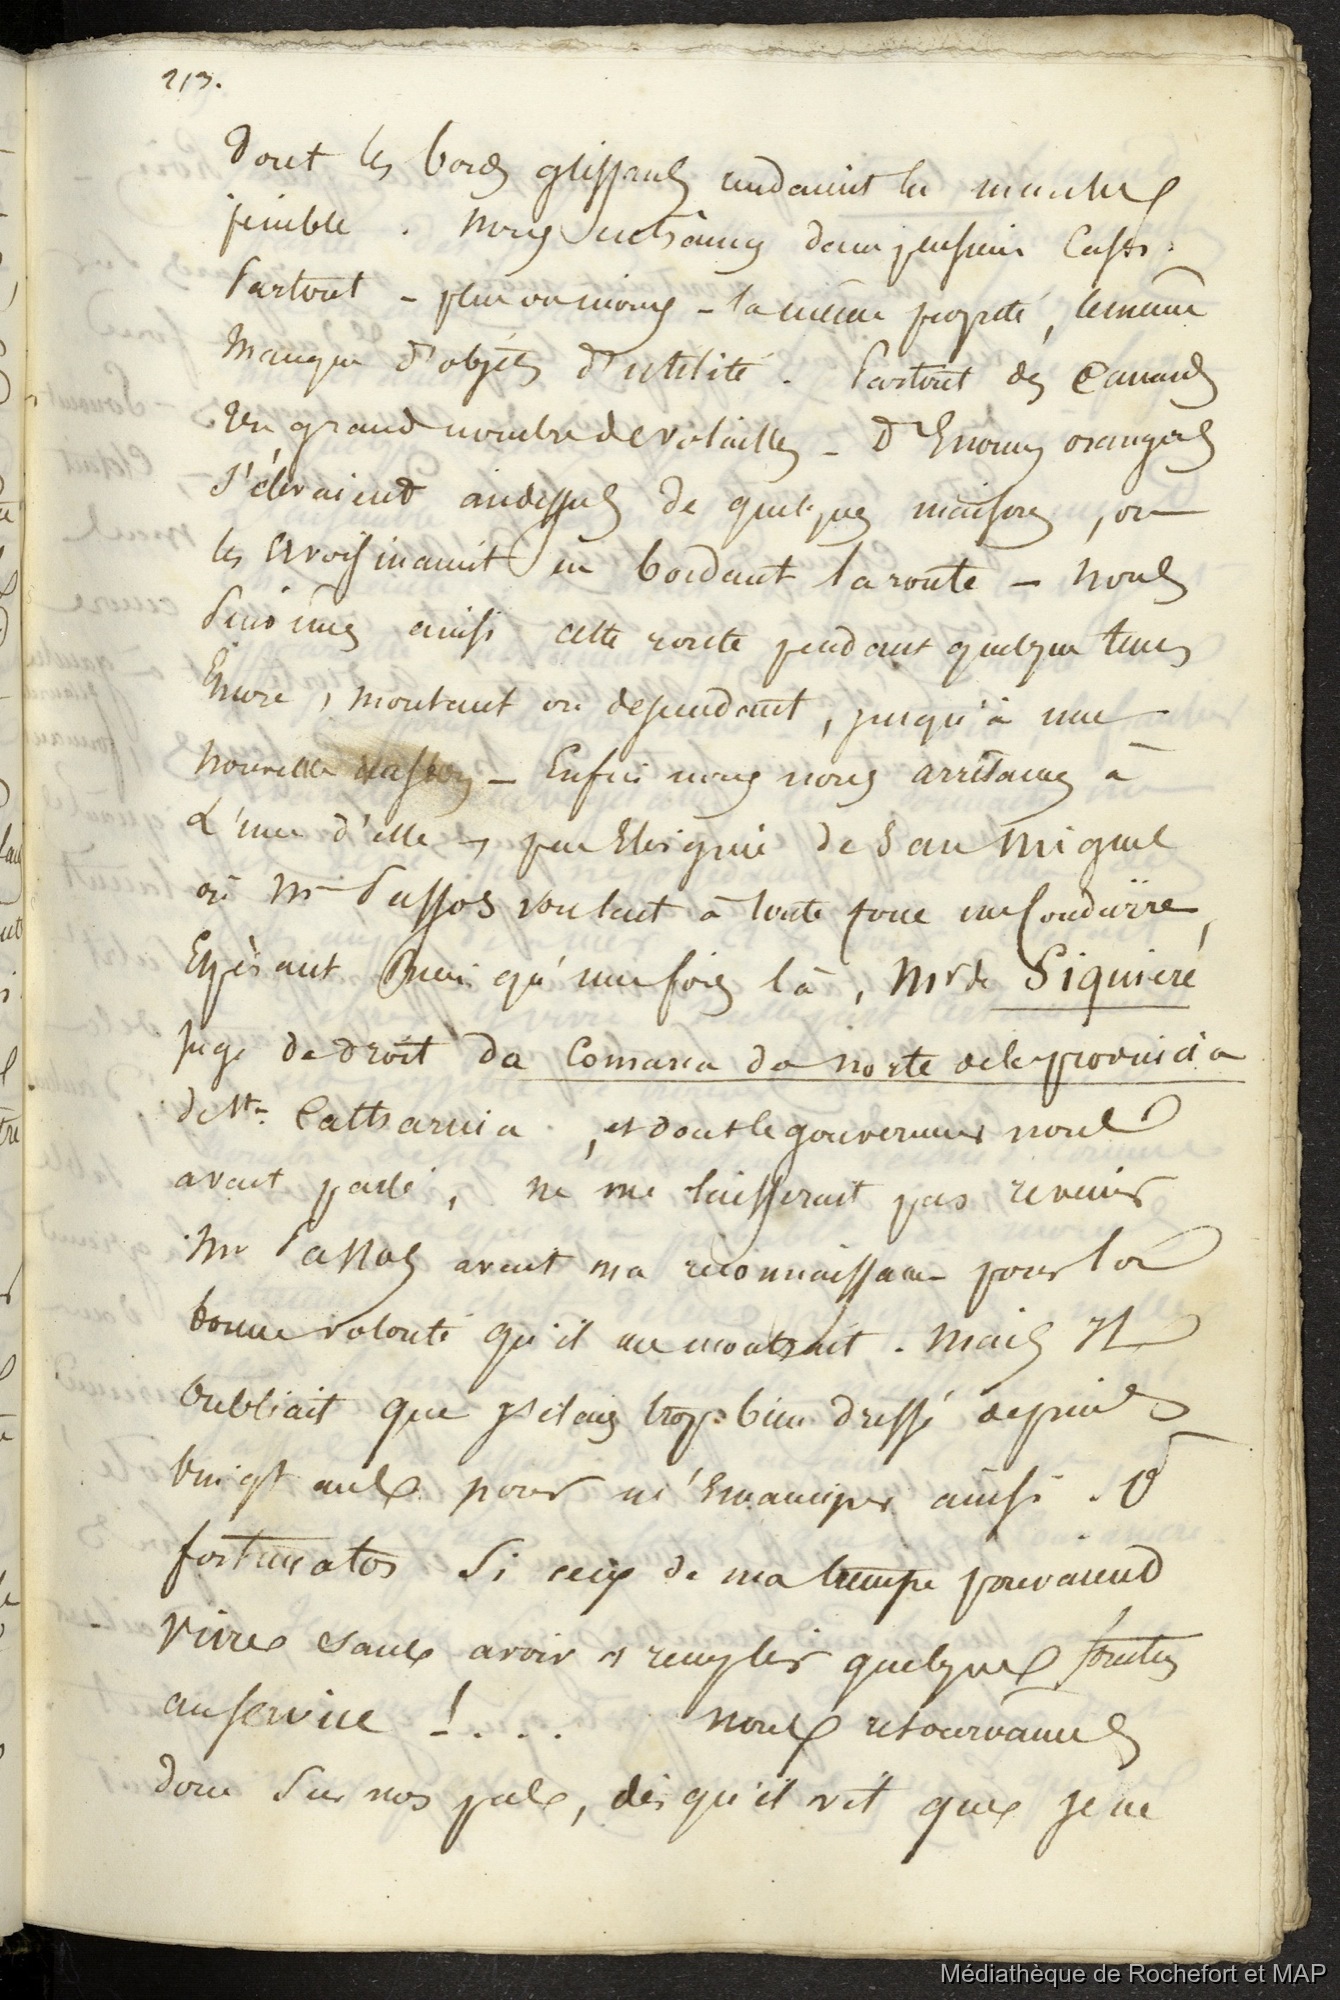 213.
dont les bords glissants rendaient la marche
penible . nous entrâmes dans plusieurs cases.
Partout - plus ou moins - la même propreté, le même
manque d'objets d'utilité. Partout des canards
un grand nombre de volailles - D'Enormes orangers
s'élevaient audessus de quelques maisons, ou
les avoisinaient en bordant la route - nous
suivîmes ainsi cette route pendant quelque tems
Encore, montant ou descendant, jusqu'à une
nouvelle - Enfin nous nous arrêtames à
L'une d'elle, peu Eloignée de San Miguel
où Mr Passos voulait à toute force me Conduire,
Espèrant qu'une fois là, Mr de Siquiere
juge de droit da Comarca do norte de la provincia
de Sta. Catharina, et dont le gouverneur nous
avait parlé, ne me laisserait pas revenir
Mr Passos avait ma reconnaissance pour la
bonne volonté qu'il me montrait. mais Il
oubliait que j'étais trop bien dressé depuis
vingt ans pour m'Emanciper ainsi. O
fortunatos si ceux de ma trempe pouvaient
vivre sans avoir à remplir quelques
au service !...  nous retournames
donc sur nos pas, dès qu'il vit que je ne
Médiathèque de Rochefort et MAP